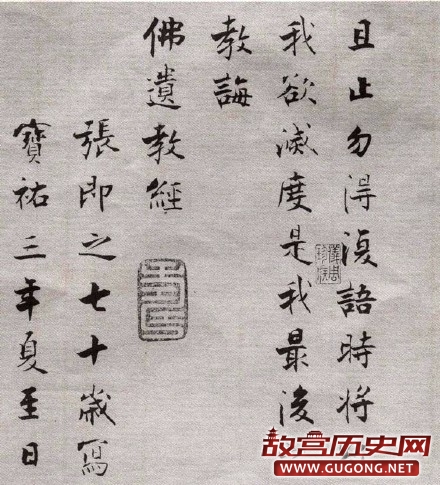 且止勿得復語時將
我欲滅度是我最後
教誨
佛遺教經
張即之七十歲寫
寶祐三年夏至日
故宫历史网
WWW.GUGONG.NET